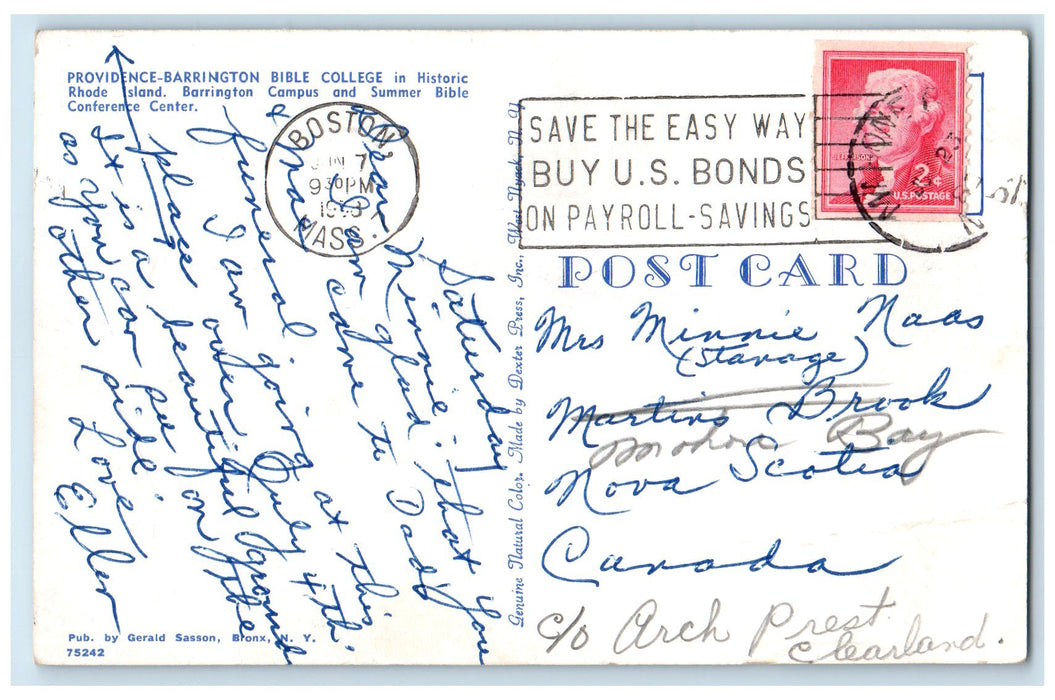 PROVIDENCE-BARRINGTON BIBLE COLLEGE in Historic
Rhode Island. Barrington Campus and Summer Bible
Conference Center.
Saturday
Dear Minnie: that you
& Max glad
came to Dad's
funeral going at this
I am July 4th.
place beautiful grounds
It is a on the
as you can see
other side.
Love
Ellen
Pub. by Gerald Sasson, Bronx, N. Y.
75242
Genuine Natural Color. Made by Dexter Press, Inc., West Nyack, N. Y.
BOSTON,
JUN 7
9 30 PM
MASS.
SAVE THE EASY WAY
BUY U.S. BONDS
ON PAYROLL-SAVINGS
JEFFERSON
2¢
U.S. POSTAGE
POST CARD
Mrs Minnie Naas
(Stanage)
Martins Brook
Bay
Nova Scotia
Canada
c/o Arch Prest.
Clearland.